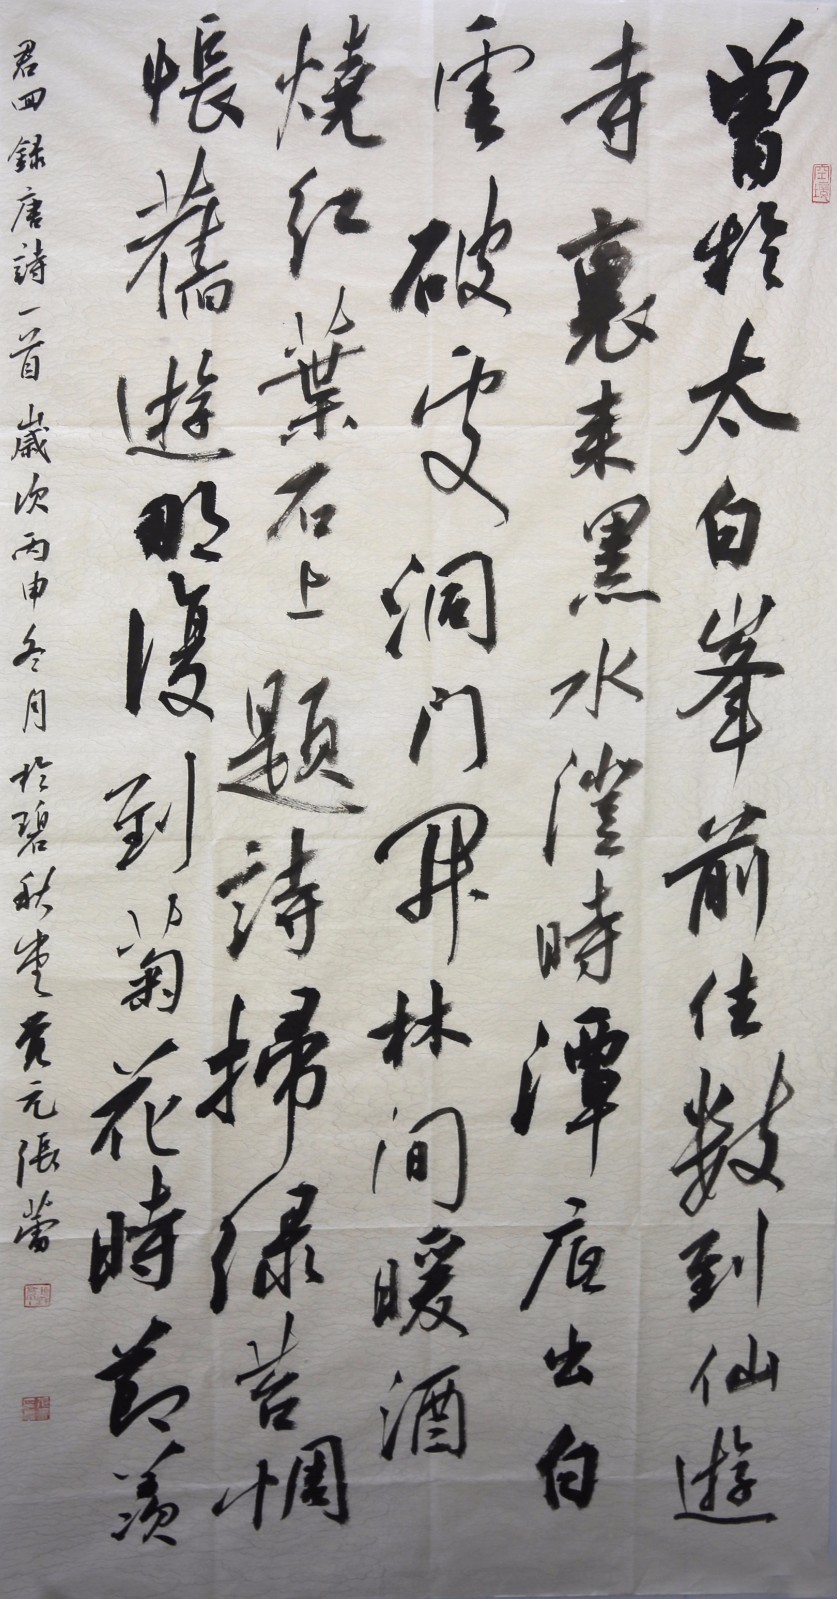 曾於太白峯前住數到仙遊
寺裏来黑水澄時潭底出白
雲破處洞门開林间暖酒
燒紅葉石上題詩掃緑苔惆
悵舊遊那復到菊花時節羨
君回録唐詩一首歲次丙申冬月於碧秋堂 元張蕾